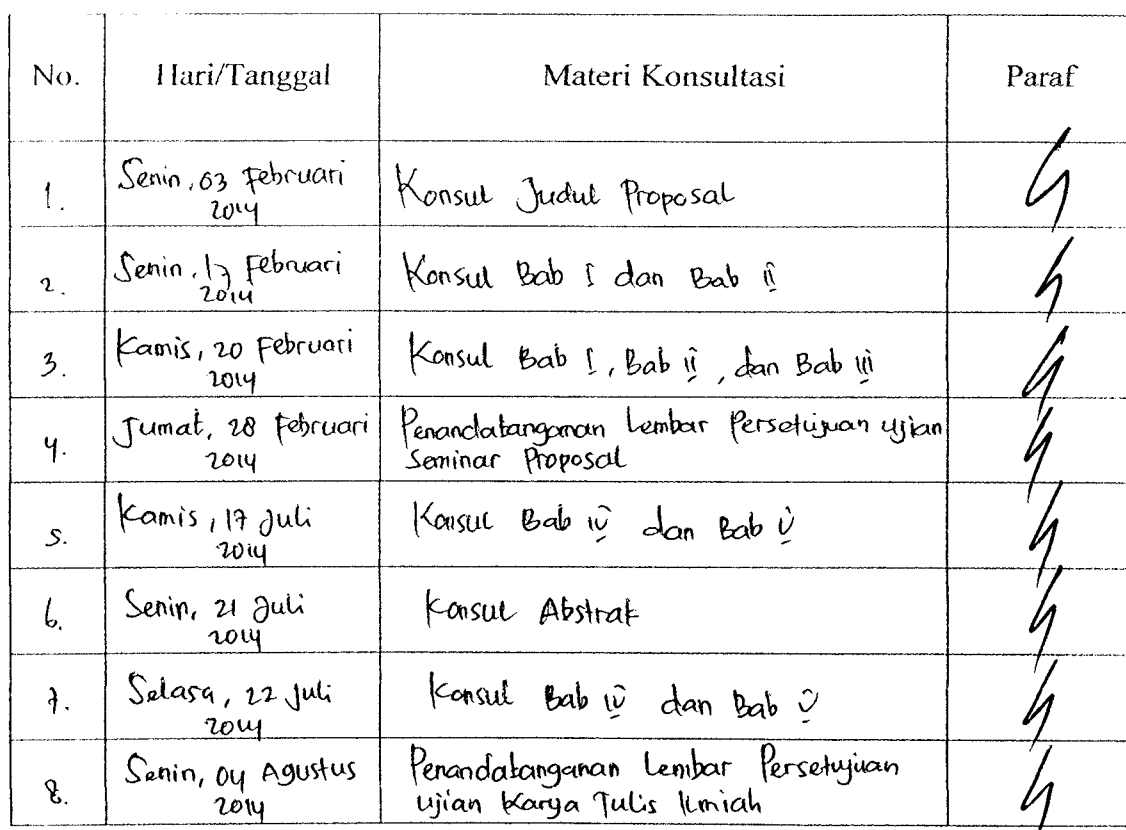 No. Hari/Tanggal Materi Konsultasi Paraf
1. Senin, 03 Februari Konsul Judul Proposal
2014
2. Senin, 17 Februari Konsul Bab I dan Bab II
2014
3. Kamis, 20 Februari Konsul Bab I, Bab II, dan Bab III
2014
4. Jumat, 28 Februari Penandatanganan Lembar Persetujuan ujian
2014 Seminar Proposal
5. Kamis, 17 Juli Konsul Bab IV dan Bab V
2014
6. Senin, 21 Juli Konsul Abstrak
2014
7. Selasa, 22 Juli Konsul Bab IV dan Bab V
2014
8. Senin, 04 Agustus Penandatanganan Lembar Persetujuan
2014 ujian Karya Tulis Ilmiah